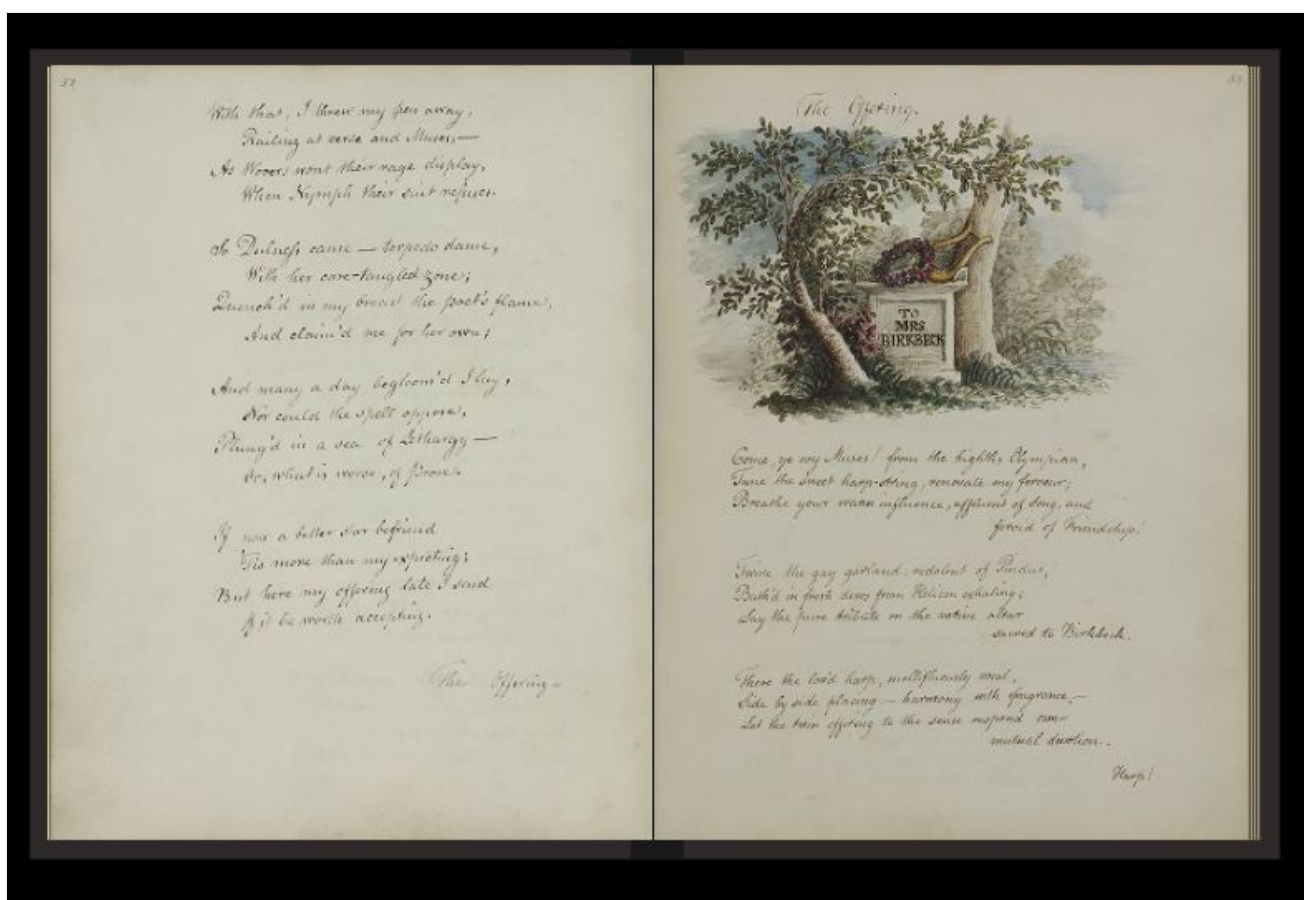 52
With that, I threw my pen away,
Railing at verse and Muses,—
As Wooers wont their rage display,
When Nymph their suit refuses.
So Dulness came — torpedo dame,
With her care-tangled zone;
Quench'd in my breast the poet's flame,
And claim'd me for her own;
And many a day begloom'd I lay,
Nor could the spell oppose,
Plung'd in a sea of Lethargy —
Or, what is worse, of Prose.
If now a better star befriend
'Tis more than my expecting;
But here my offering late I send
If it be worth accepting.
The Offering —
The Offering.
TO
MRS
BIRKBECK
Come ye coy Muses! from the heights Olympian,
Tune the sweet harp-string, renovate my fervour;
Breathe your warm influence, affluent of song, and
fervid of Friendship!
Twine the gay garland, redolent of Pindus,
Bath'd in fresh dews from Helicon exhaling;
Lay the pure tribute on the votive altar
sacred to Birkbeck.
There the lov'd harp, mellifluously vocal,
Side by side placing — harmony with fragrance,—
Let the twin offering to the sense respond our
mutual devotion.
Harp!